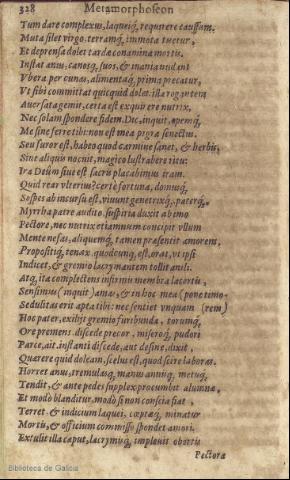 328 Metamorphoseon
Tum dare complexus, laqueiq́, requirere caussam.
Muta silet virgo. terramq́, immota tuetur,
Et deprensa dolet tardæ conamina mortis.
Instat anus: canosq́, suos, & inania nudans
Vbera per cunas, alimentaq́, prima precatur,
Vt sibi committat quicquid dolet: illa rogantem
Auersata gemit. certa est exquirere nutrix,
Nec solam spondere fidem. Dic, inquit, opemq́,
Me sine ferre tibi: non est mea pigra senectus.
Seu furor est, habeo quod carmine sanet, & herbis,
Siue aliquis nocuit, magico lustrabere ritu:
Ira Deûm siue est sacris placabimus iram.
Quid rear vlterius? certè fortuna, domusq́,
Sospes ab incursu est, viuunt genetrixq́, paterq́,.
Myrrha patre audito, suspiria duxit ab imo
Pectore, nec nutrix etiamnum concipit vllum
Mente nefas, aliquemq́, tamen præsentit amorem,
Propositiq́, tenax. quodcunq, est, orat, vt ipsi
Indicet, & gremio lacrymantem tollit anili.
Atq, ita complectens infirmis membra lacertis,
Sensimus (inquit) amas, & in hoc mea (pone timorem)
Sedulitas erit apta tibi: nec sentiet vnquam
Hoc pater, exilijt gremio furibunda, torumq́,
Ore premens. discede precor. miseroq́, pudori
Parce, ait, instanti discede, aut desine, dixit,
Quærere quid doleam, scelus est, quod scire laboras.
Horret anus, tremulasq́, manus annisq́, metuq́,
Tendit, & ante pedes supplex procumbit alumnæ,
Et modò blanditur, modò si non conscia fiat,
Terret. & indicium laquei, cœptæq́, minatur
Mortis, & officium commisso spondet amori.
Extulit illa caput, lacrymisq́, impleuit obortis
Pectora
Biblioteca de Galicia